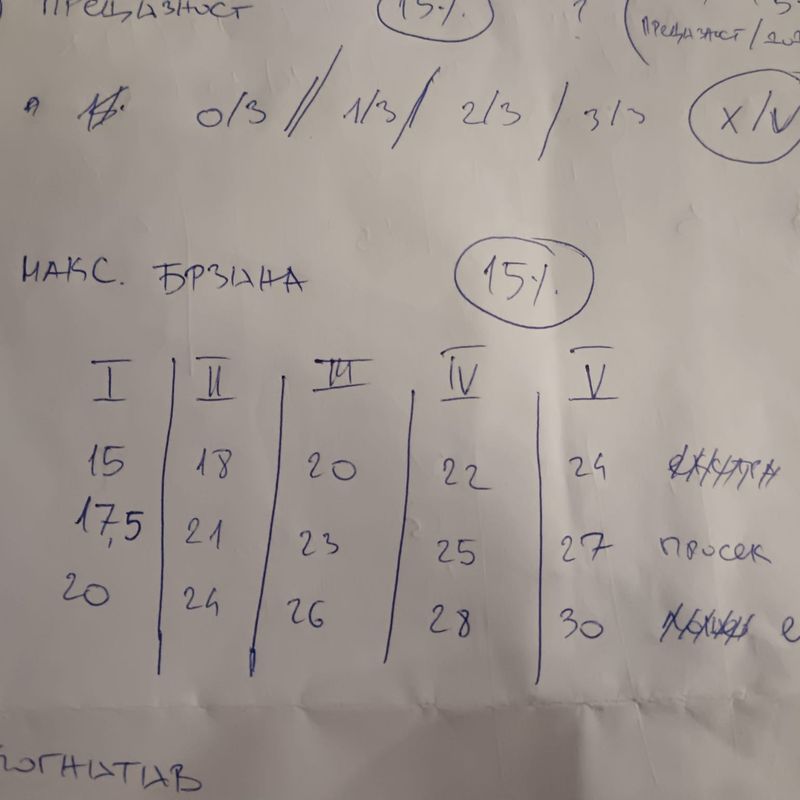 ПРЕЦИЗНОСТ 15% ?
ПРЕЦИЗНОСТ/
0/3 // 1/3 / 2/3 / 3/3 X/V
МАКС. БРЗИНА 15%
I II III IV V
15 18 20 22 24
17,5 21 23 25 27 просек
20 24 26 28 30
КОГНИТИВ